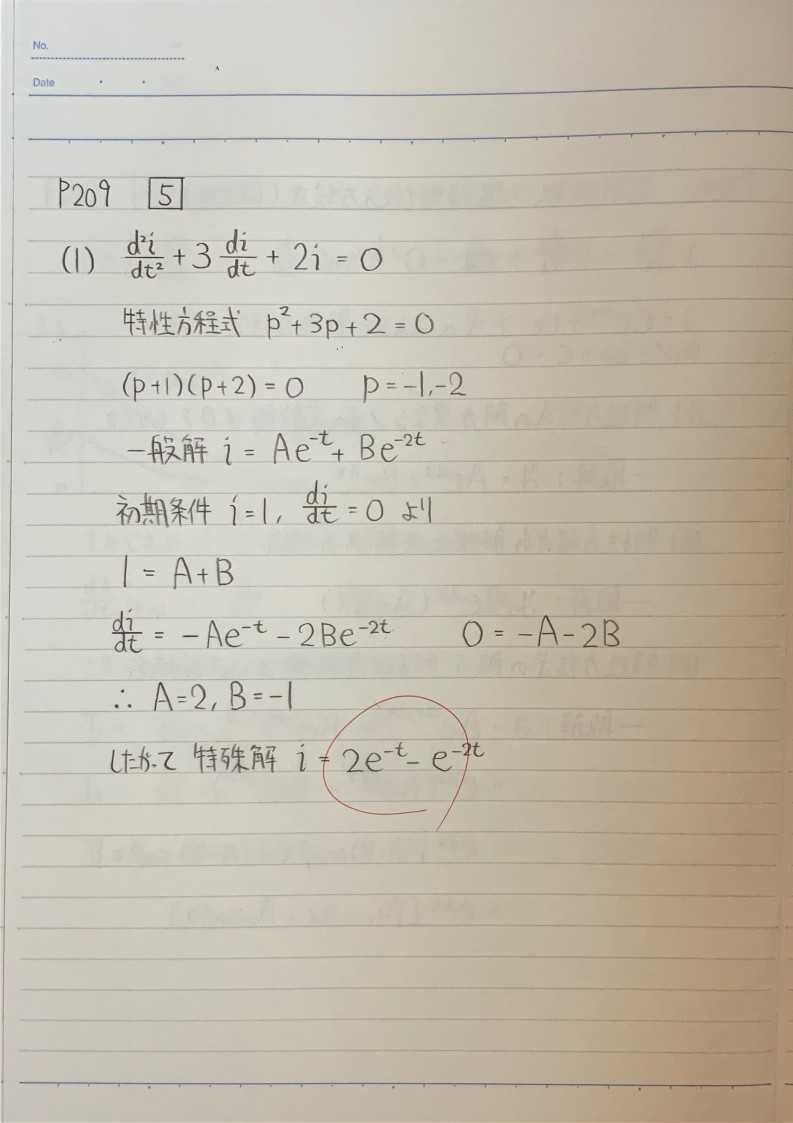 No.
Date
P209 5
(1) d²i/dt² + 3 di/dt + 2i = 0
特性方程式 p²+3p+2=0
(p+1)(p+2)=0 p=-1,-2
一般解 i = Ae^-t + Be^-2t
初期条件 i=1, di/dt = 0 より
1 = A+B
di/dt = -Ae^-t - 2Be^-2t 0 = -A-2B
∴ A=2, B=-1
したがって 特殊解 i = 2e^-t - e^-2t